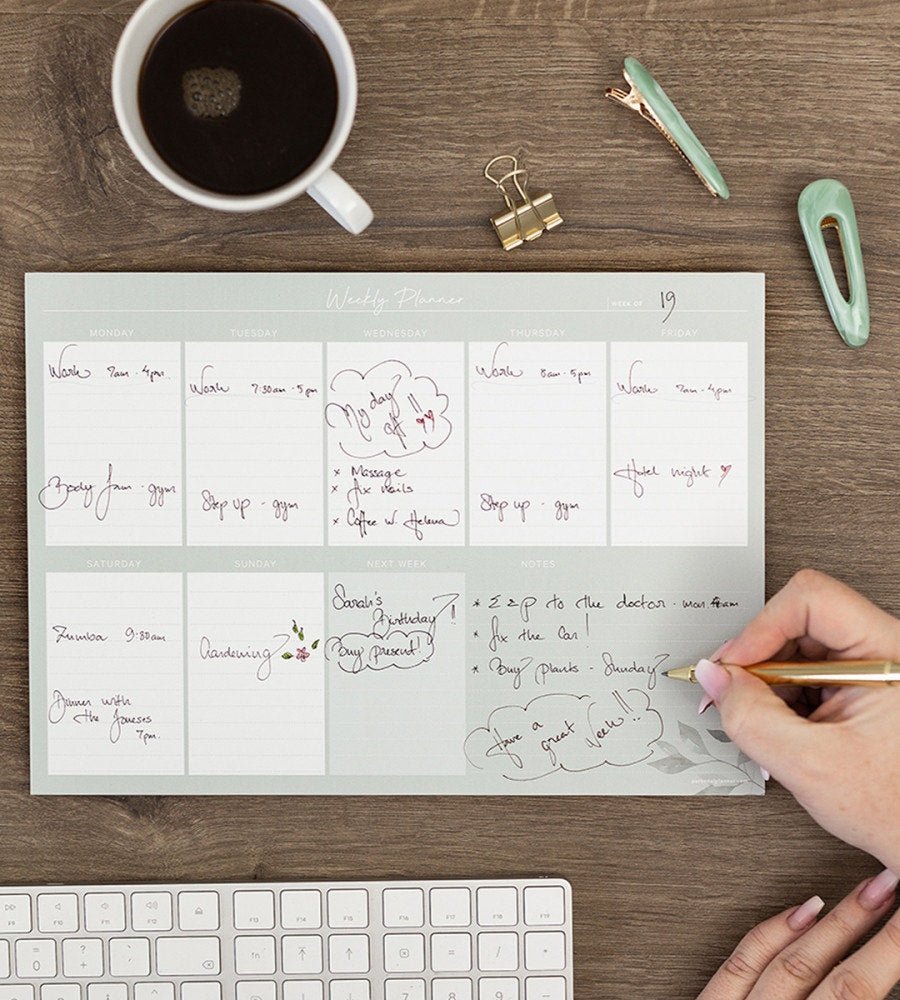 Weekly Planner
WEEK OF 19
MONDAY
Work 7am - 4pm.
Body Jam - gym
TUESDAY
Work 7:30am - 5pm
Step up - gym
WEDNESDAY
My day
off !!
x Massage
x fix nails
x Coffee w Helena
THURSDAY
Work 8am - 5pm
Step up - gym
FRIDAY
Work 7am - 4pm
Hotel night
SATURDAY
Zumba 9:30am
Dinner with
the Joneses
7pm.
SUNDAY
Gardening
NEXT WEEK
Sarah's
Birthday !!
Buy present!
NOTES
* to the doctor - mon. am
* fix the car!
* Buy plants - Sunday
Have a
great week!!
F9
F10
F11
F12
F13
F14
F15
F16
F17
F18
F19
=
0
?
+
fn
=
/
*
7
8
9
-